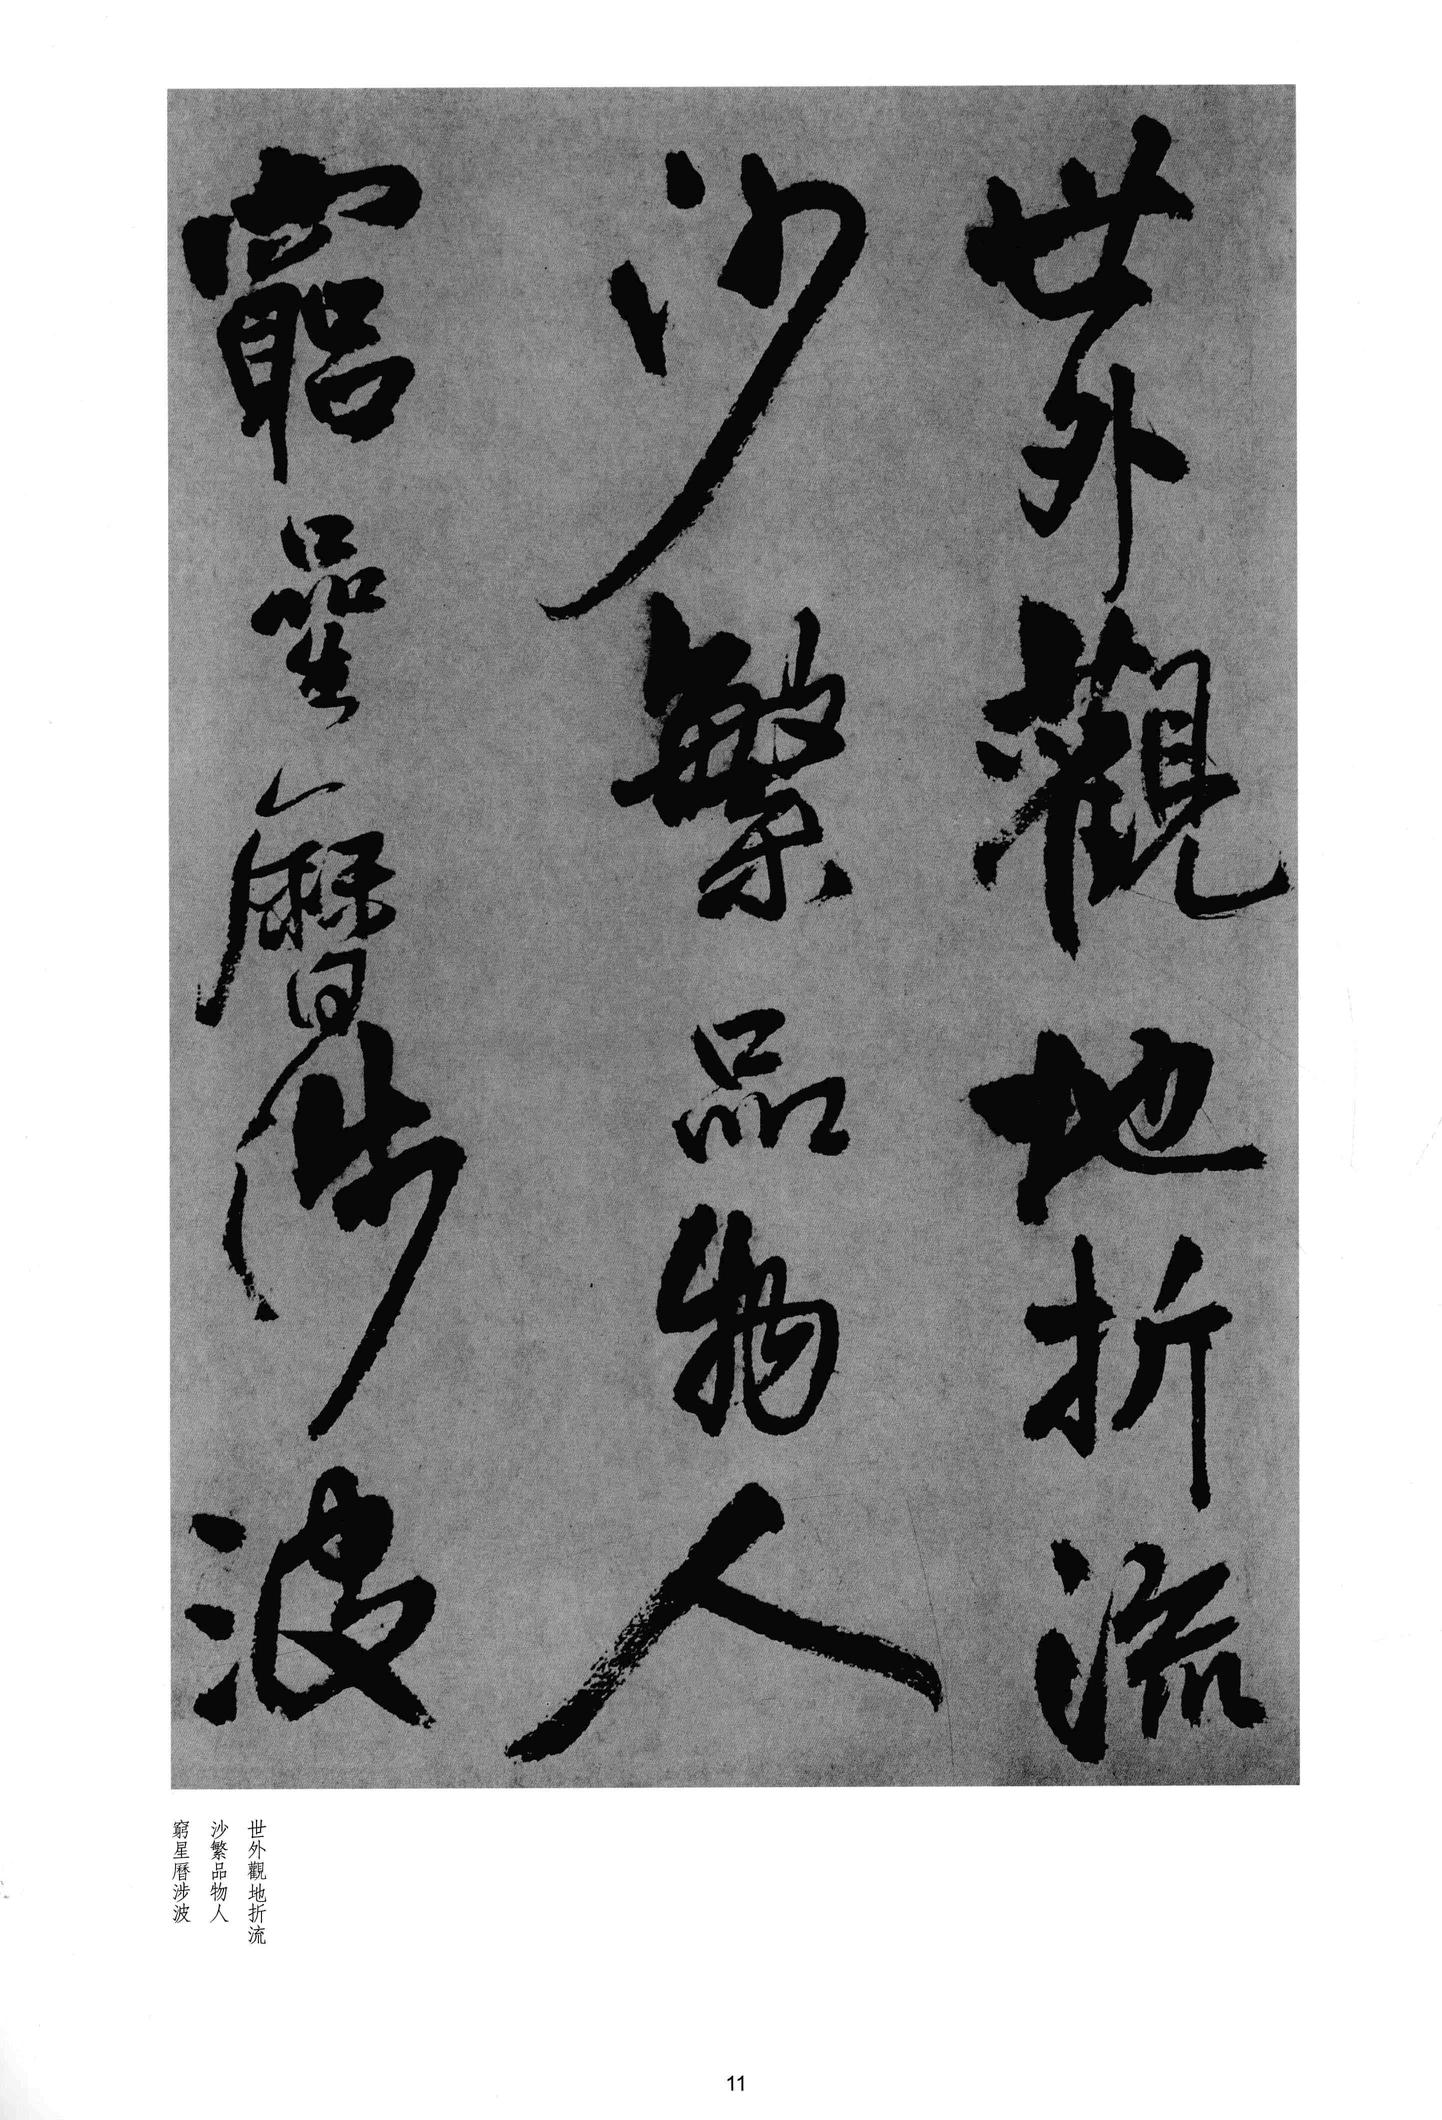 世外觀地折流
沙繁品物人
窮星曆涉波
世外觀地折流
沙繁品物人
窮星曆涉波
11